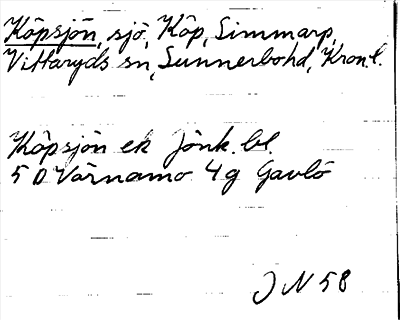 Köpsjön, sjö, Köp, Simmarp,
Vittaryds sn, Sunnerbohd, Kron.l.
Köpsjön ek Jönk. bl.
5 D Värnamo 4g Gavlö
J N 58